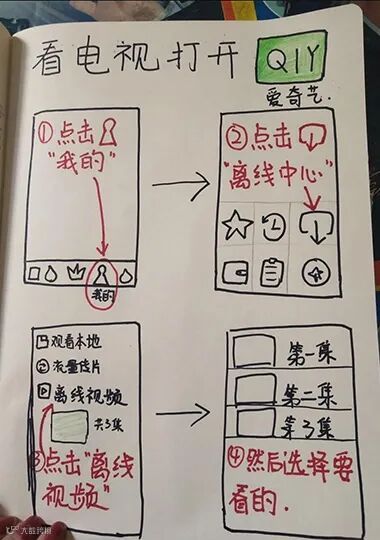 看电视打开 QIY
爱奇艺.
①点击
"我的"
我的
②点击
"离线中心"
观看本地
流量传片
离线视频
共3集
③点击"离线
视频"
第一集
第二集
第3集
④然后选择要
看的.
大数跨境